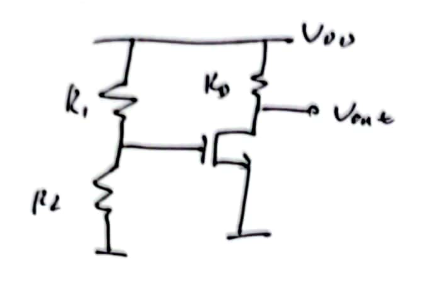 VDD
R1
RD
Vout
R2